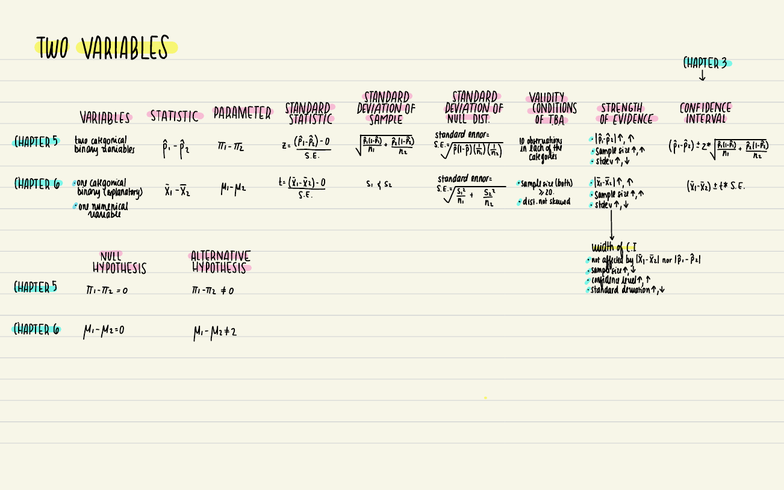 TWO VARIABLES
CHAPTER 3
↓
VARIABLES
STATISTIC
PARAMETER
STANDARD
STATISTIC
STANDARD
DEVIATION OF
SAMPLE
STANDARD
DEVIATION OF
NULL DIST.
VALIDITY
CONDITIONS
OF TBA
STRENGTH
OF EVIDENCE
CONFIDENCE
INTERVAL
CHAPTER 5
two categorical
binary variables
p̂₁ - p̂₂
π₁ - π₂
z = (p̂₁-p̂₂) - 0 / S.E.
√ p̂₁(1-p̂₁)/n₁ + p̂₂(1-p̂₂)/n₂
standard error:
S.E. = √ p̂(1-p̂)(1/n₁)(1/n₂)
10 observations
in each of the
categories
|p̂₁-p̂₂| ↑, ↑
sample size ↑, ↑
stdev ↑, ↓
(p̂₁-p̂₂) ± z* √ p̂₁(1-p̂₁)/n₁ + p̂₂(1-p̂₂)/n₂
CHAPTER 6
one categorical
binary (explanatory)
one numerical
variable
x̄₁ - x̄₂
μ₁ - μ₂
t = (x̄₁ - x̄₂) - 0 / S.E.
S₁ & S₂
standard error:
S.E. = √ S₁²/n₁ + S₂²/n₂
sample size (both)
≥ 20.
dist. not skewed
|x̄₁-x̄₂| ↑, ↑
sample size ↑, ↑
stdev ↑, ↓
(x̄₁-x̄₂) ± t* S.E.
width of C.I
not affected by |x̄₁-x̄₂| nor |p̂₁-p̂₂|
sample size ↑, ↓
confidence level ↑, ↑
standard deviation ↑, ↓
NULL
HYPOTHESIS
ALTERNATIVE
HYPOTHESIS
CHAPTER 5
π₁ - π₂ = 0
π₁ - π₂ ≠ 0
CHAPTER 6
μ₁ - μ₂ = 0
μ₁ - μ₂ ≠ 2